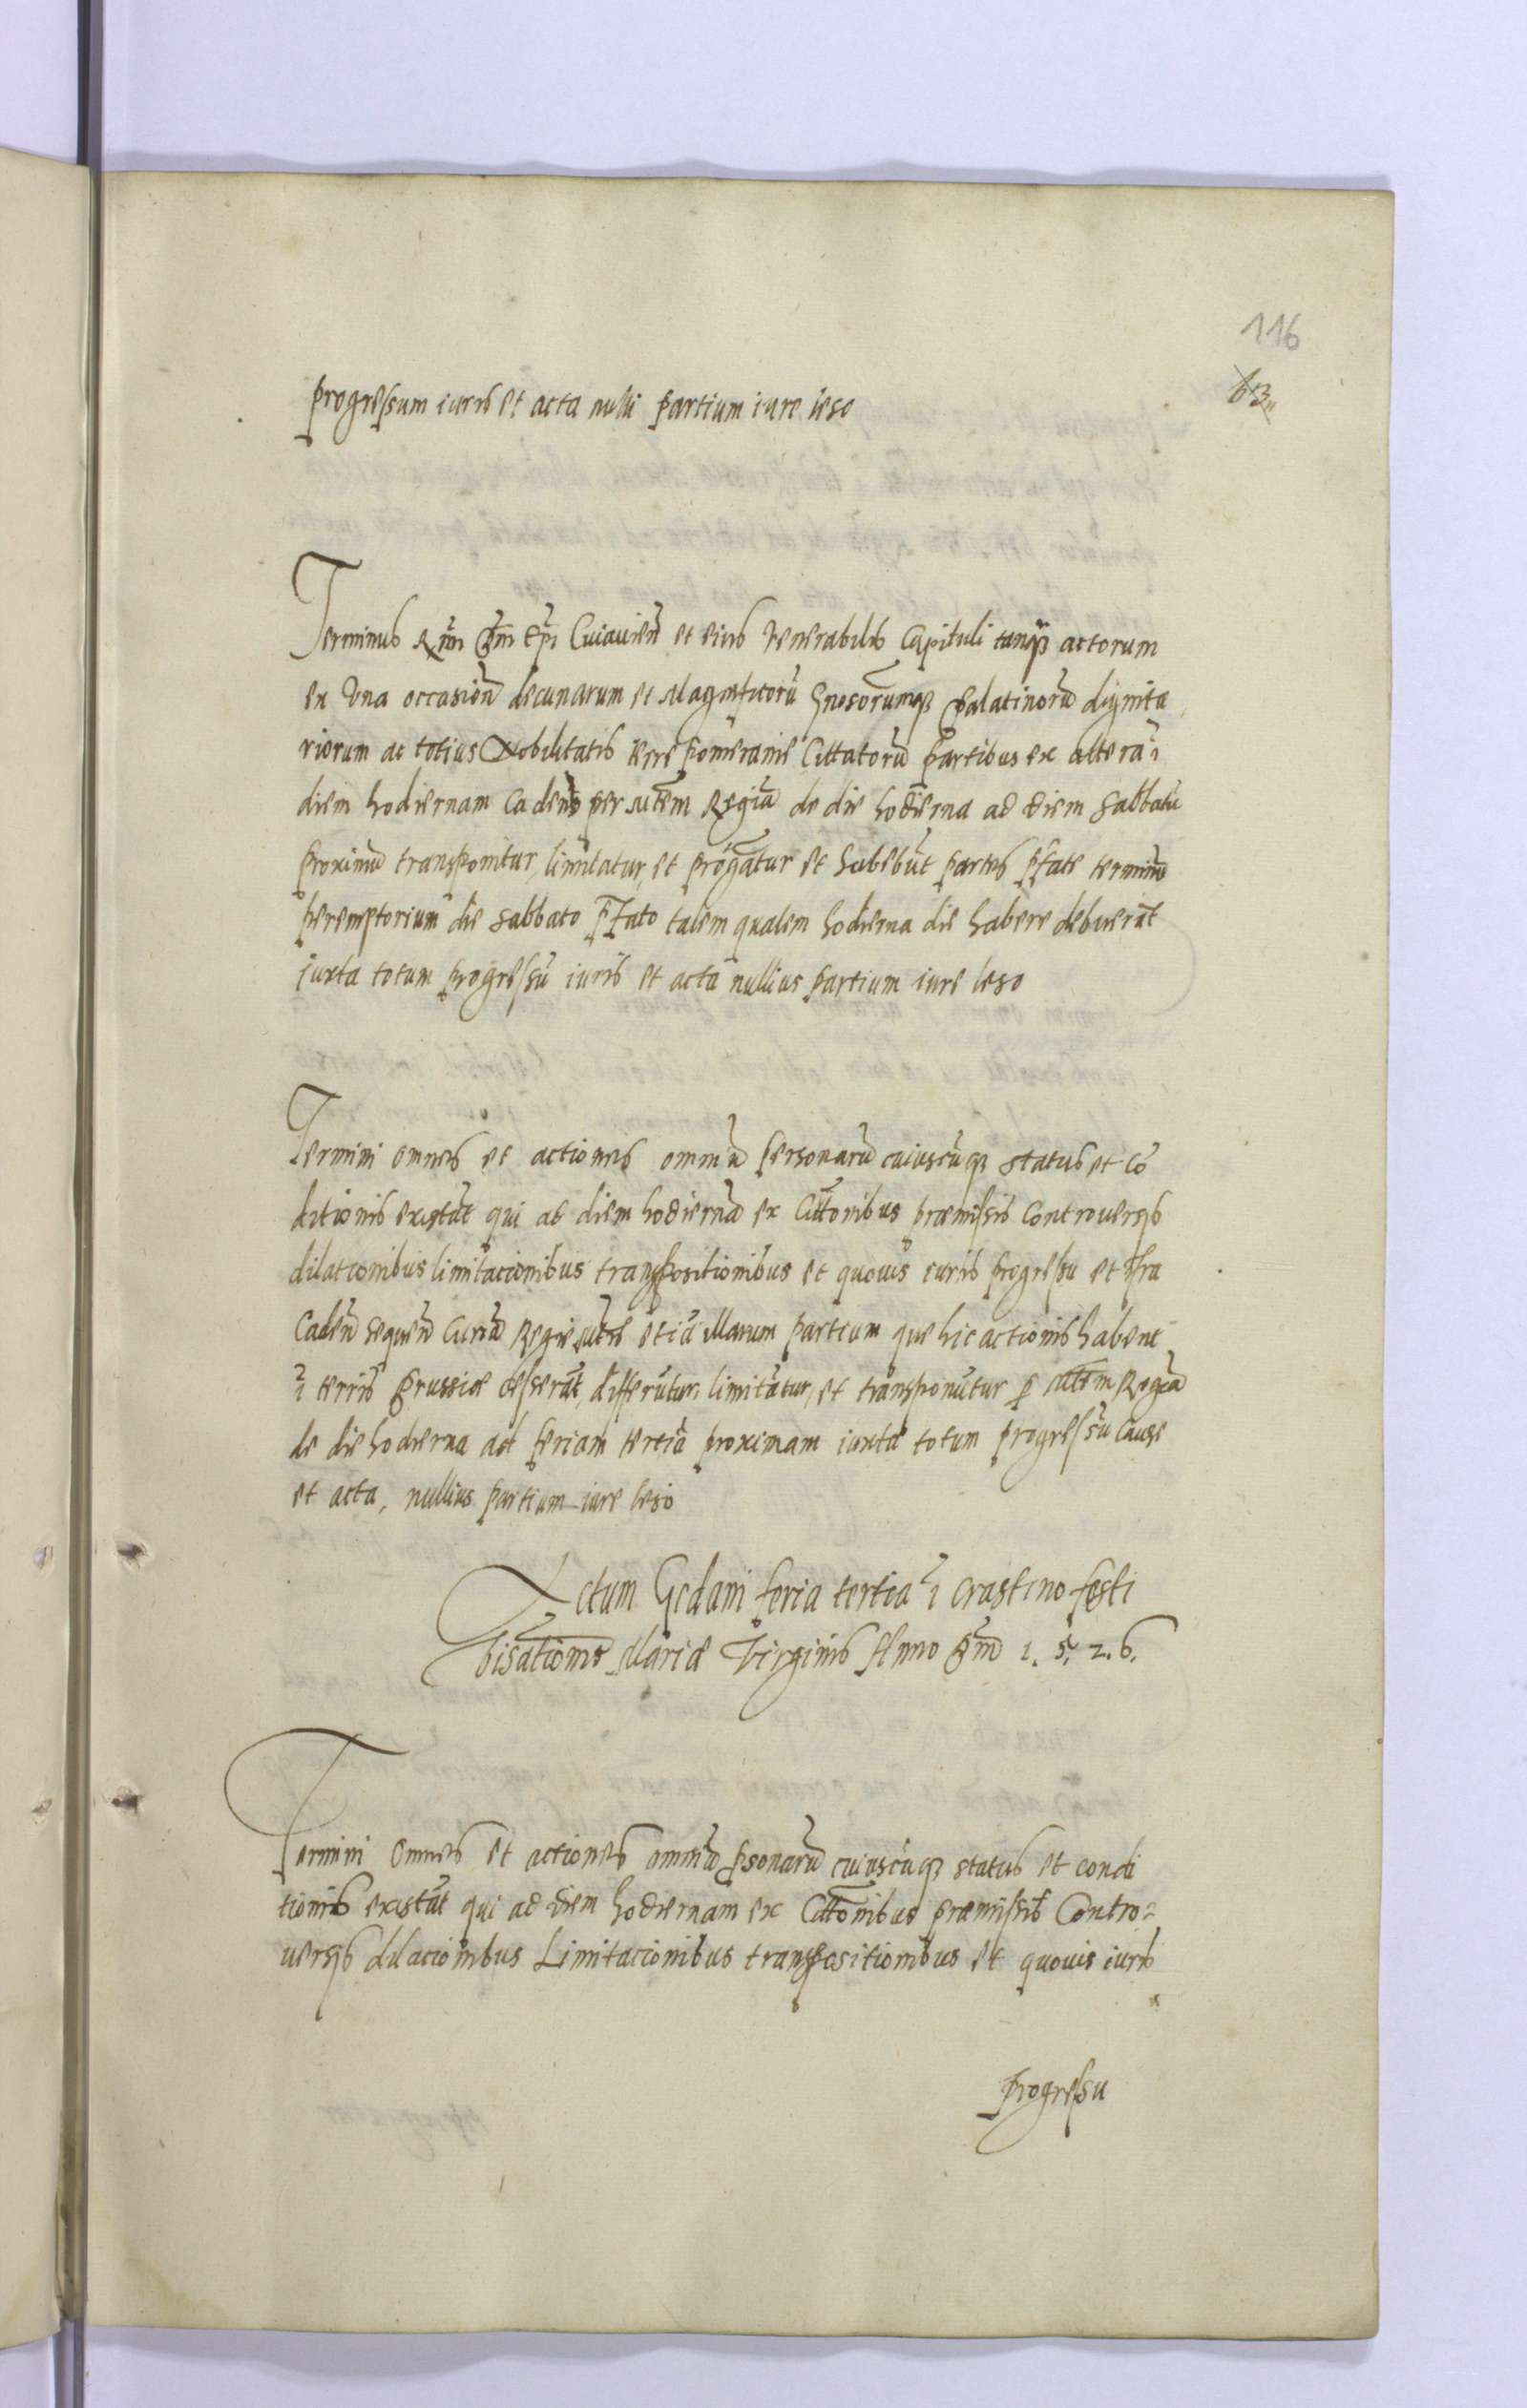 116
63
progressum iuris et acta nulli partium iure leso
Terminus Rmi Dm Epi Cuiavieñ et eius Venerabilis Capituli tanq̃ actorum
ex Vna occasioñ decimarum et Magnificorũ Gnosorumq̃ Palatinorũ dignita
riorum ac totius Nobilitatis terre Pomeranie Cittatorũ partibus ex altera ĩ
diem hodiernam cadens per Mtem Regiã de die hodierna ad diem Sabbatũ
proximũ transponitur, limitatur, et prõgatur et habebũt partes pfate terminũ
peremptorium die Sabbato pfato talem qualem hodierna die habere debuerãt
iuxta totum progressũ iuris et acta nullius partium iure leso
Termini omnes et actiones omniũ personarũ cuiuscũq̃ status et cõ
ditionis existãt qui ad diem hodiernã ex Cittonibus præmissis controuersijs
dilationibus limitacionibus transpositionibus et quouis iuris progressu et ifra
Cadeñ sequeñ Curiã Regie Mtis etiã illarum partium que hic actiones habent
ĩ terris Prussiæ cesserãt, differũtur, limitãtur, et transponũtur p Mtem Regiã
de die hodierna ad feriam tertiã proximam iuxta totum progressũ cause
et acta, nullius partium iure leso
Actum Gedani feria tertia ĩ crastino festi
Visationis Mariæ Virginis Anno Dm 1. 5. 2. 6.
Termini Omnes et actiones omniũ psonarũ cuiuscũq̃ status et condi
tionis existãt qui ad diem hodiernam ex Cittonibus præmissis Contro=
uersijs dilacionibus Limitacionibus transpositionibus et quouis iuris
progressu